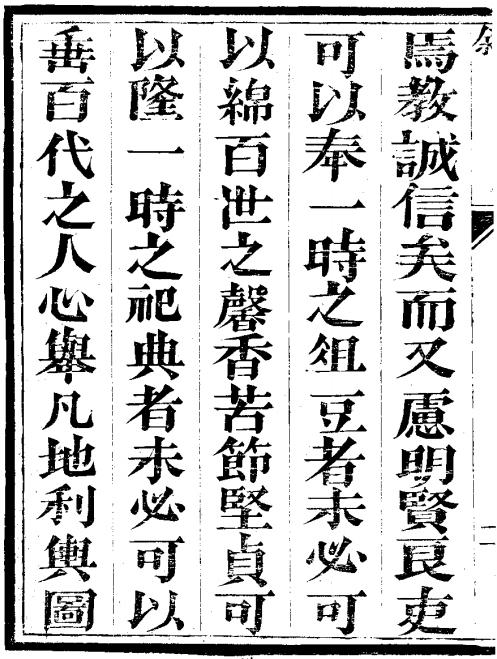 焉教誠信矣而又慮明賢良吏
可以奉一時之俎豆者未必可
以綿百世之馨香苦節堅貞可
以隆一時之祀典者未必可以
垂百代之人心舉凡地利輿圖